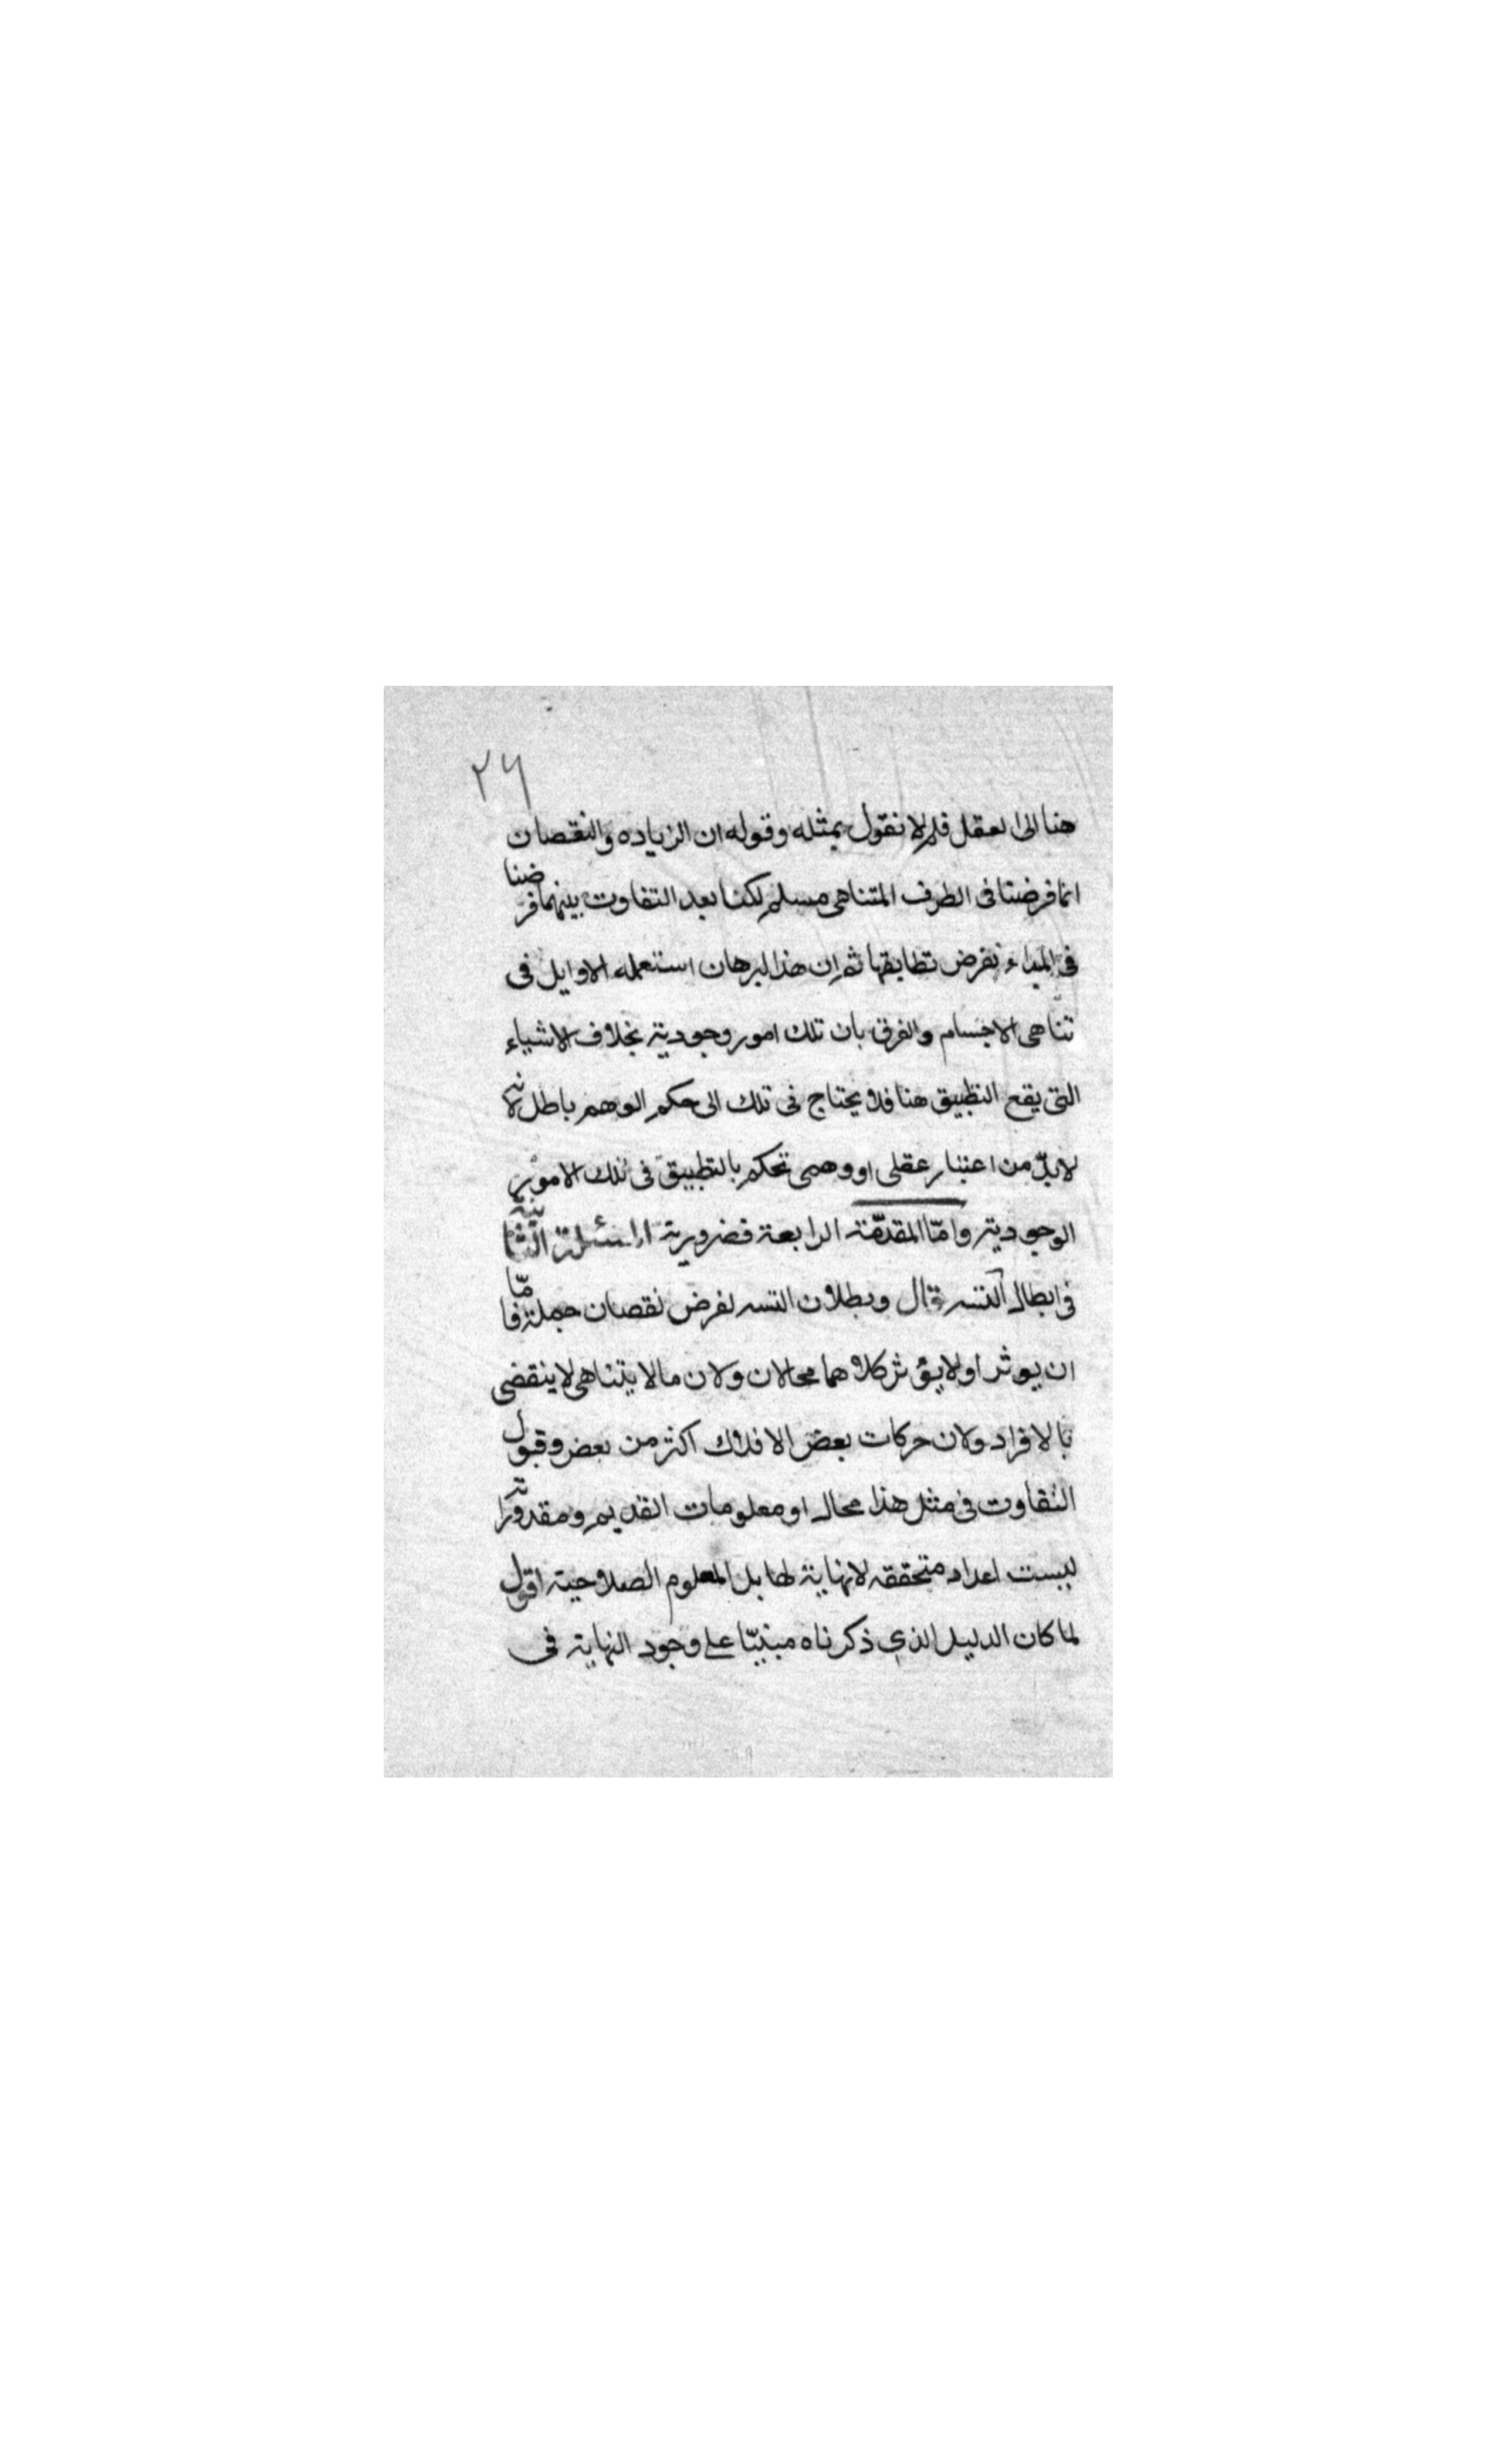 ٢٦
هنا الى العقل فلم لا نقول بمثله وقوله ان الزياده والنقصان
انما فرضنا فى الطرف المتناهى مسلم لكنا بعد التفاوت بينهما فرضنا
فى المبداء نفرض تطابقها ثم ان هذا البرهان استعمله الاوايل فى
تناهى الاجسام والفرق بان تلك امور وجودية بخلاف الاشياء
التى يقع التطبيق هنا فلا يحتاج فى تلك الى حكم الوهم باطل لانه
لا بدّ من اعتبار عقلى او وهمى تحكم بالتطبيق فى تلك الامور
الوجودية وامّا المقدّمة الرابعة فضرورية المسئلة الثانية
فى ابطال التسه قال وبطلان التسه لفرض نقصان جملة فامّا
ان يوثر او لا يؤثر كلاهما محالان ولان ما لا يتناهى لا ينقضى
بالافراد ولان حركات بعض الافلاك اكثر من بعض وقبول
التفاوت فى مثل هذا محال او معلومات القديم ومقدوراته
ليست اعداد متحققه لا نهاية لها بل المعلوم الصلاحية اقول
لما كان الدليل الذي ذكرناه مبنيّا على وجود النهاية فى